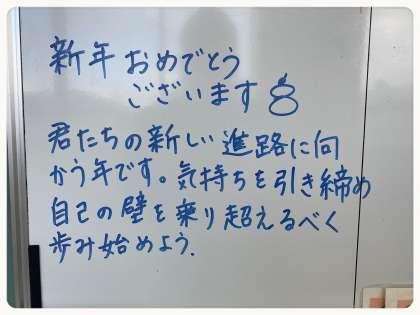 新年おめでとう
ございます
君たちの新しい進路に向
かう年です。気持ちを引き締め
自己の壁を乗り超えるべく
歩み始めよう.